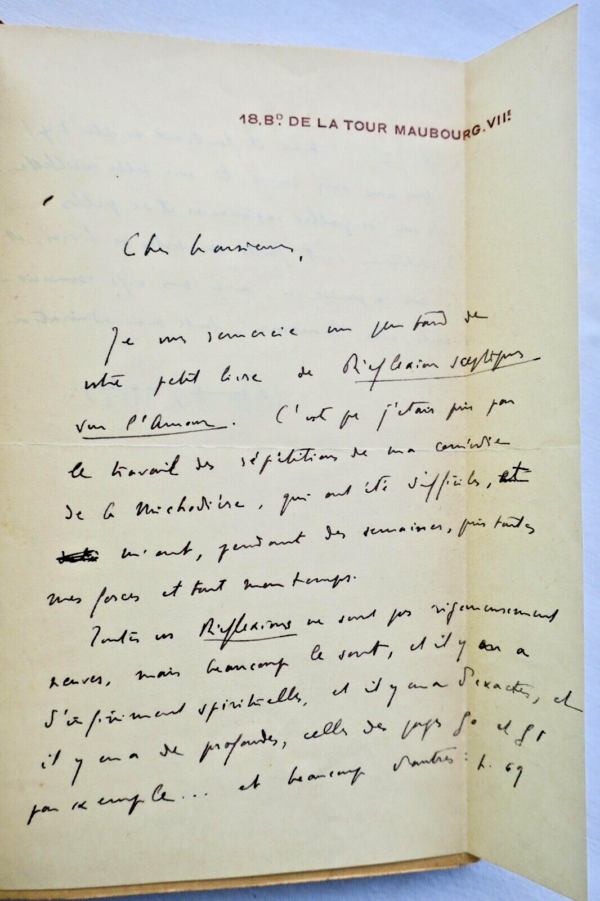 18.Bᴰ. DE LA TOUR MAUBOURG.VIIᴱ
Cher Monsieur,
Je vous remercie un peu tard de
votre petit livre de Réflexions sceptiques
sur l'Amour. C'est que j'étais pris par
le travail des répétitions de ma comédie
de la Michodière, qui ont été difficiles, et
m'ont, pendant des semaines, pris toutes
mes forces et tout mon temps.
Toutes ces Réflexions ne sont pas rigoureusement
neuves, mais beaucoup le sont, et il y en a
d'infiniment spirituelles, et il y en a d'exactes, et
il y en a de profondes, celles des pages 90 et 91
par exemple... et beaucoup d'autres : p. 69